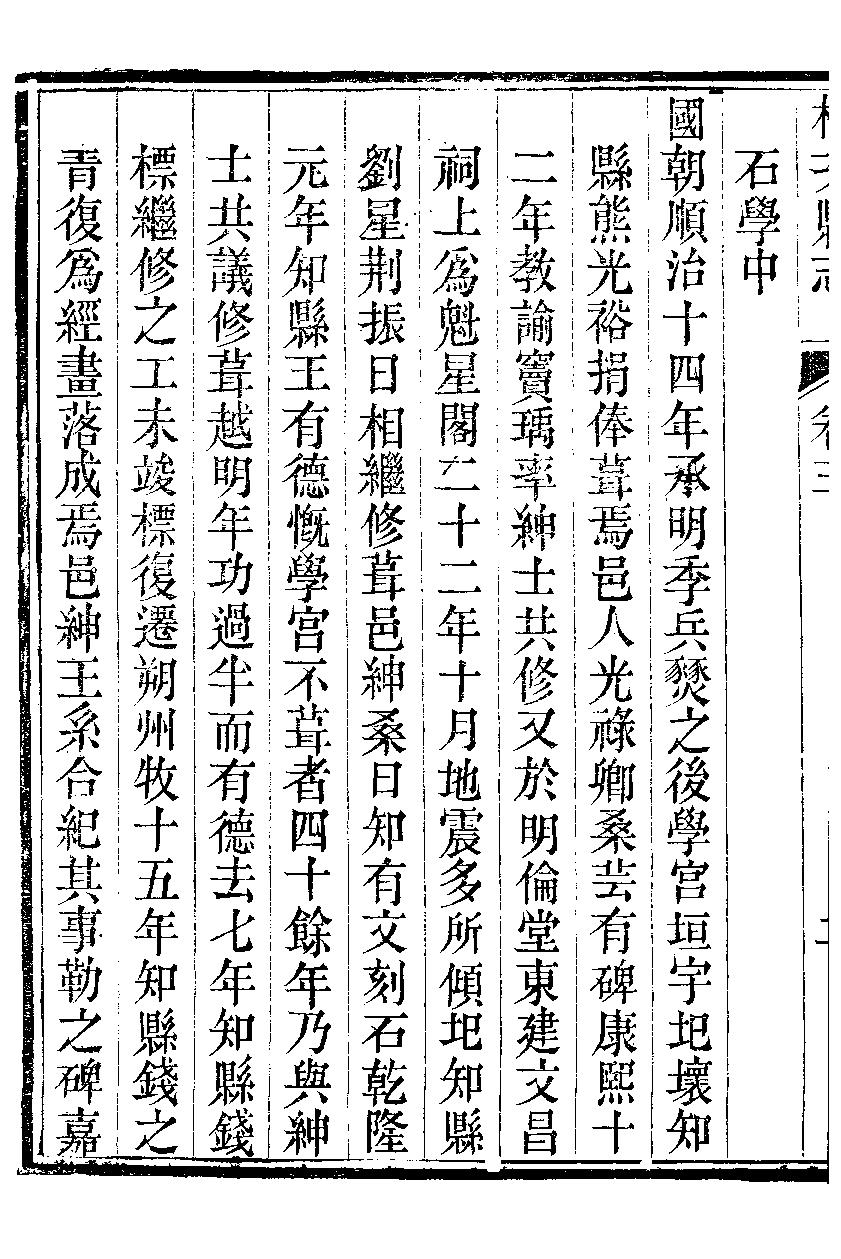 石學中
國朝順治十四年承明季兵燹之後學宮垣宇圮壞知
縣熊光裕捐俸葺焉邑人光祿卿桑芸有碑康熙十
二年教諭竇瑀率紳士共修又於明倫堂東建文昌
祠上為魁星閣二十二年十月地震多所傾圮知縣
劉星荆振日相繼修葺邑紳桑日知有文刻石乾隆
元年知縣王有德慨學宮不葺者四十餘年乃與紳
士共議修葺越明年功過半而有德去七年知縣錢
標繼修之工未竣標復遷朔州牧十五年知縣錢之
青復為經畫落成焉邑紳王系合紀其事勒之碑嘉